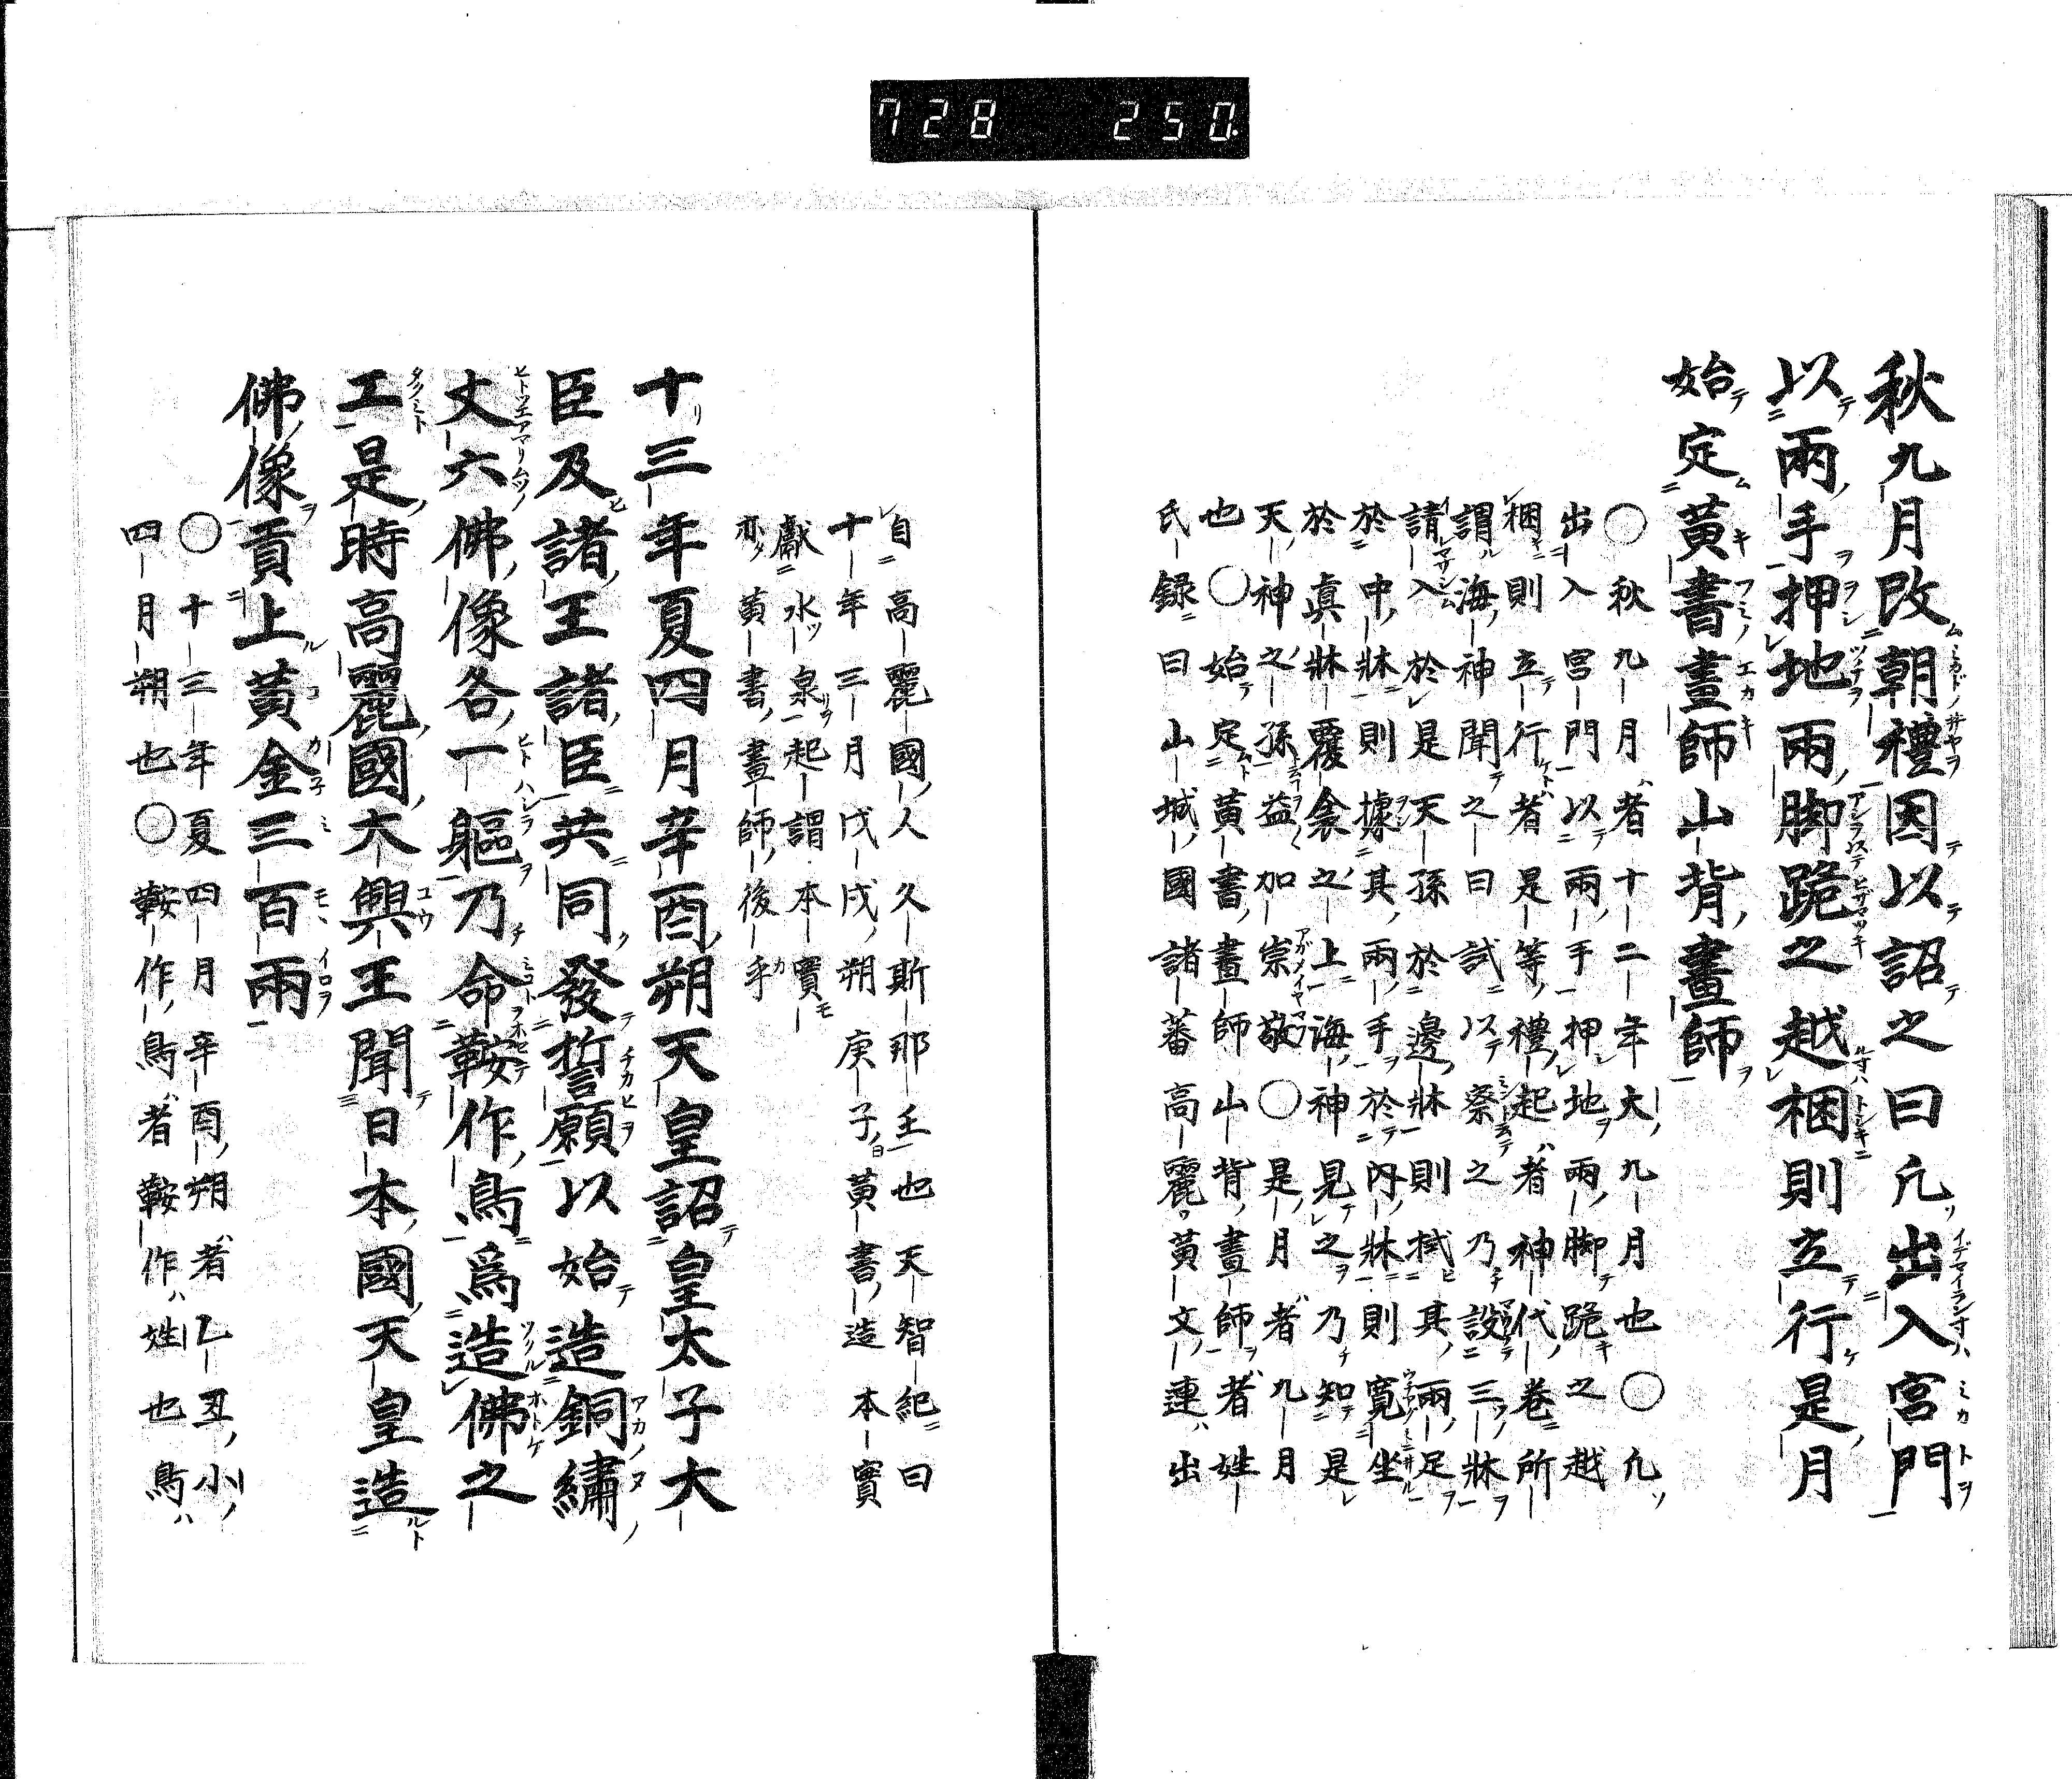 728 250.
秋九月改朝禮因以詔之曰凢出入宮門
以兩手押地兩脚跪之越梱則立行是月
始定黃書畫師山背畫師
〇秋九月者十二年大九月也〇凢
出入宮門以兩手押地兩脚跪之越
梱則立行者是等禮起者神代卷所
謂海神聞之曰試以察之乃設三牀
請入於是天孫於邊牀則拭其兩足
於中牀則據其兩手於內牀則寛坐
於眞牀覆衾之上海神見之乃知是
天神之孫益加崇敬〇是月者九月
也〇始定黃書畫師山背畫師者姓
氏録曰山城國諸蕃高麗黃文連出
自高麗國人久斯那王也天智紀曰
十年三月戊戌朔庚子黃書造本實
獻水泉起謂本實
亦黃書畫師後乎
十三年夏四月辛酉朔天皇詔皇太子大
臣及諸王諸臣共同發誓願以始造銅繡
丈六佛像各一軀乃命鞍作鳥爲造佛之
工是時高麗國大興王聞日本國天皇造
佛像貢上黃金三百兩
〇十三年夏四月辛酉朔者乙丑小
四月朔也〇鞍作鳥者鞍作姓也鳥